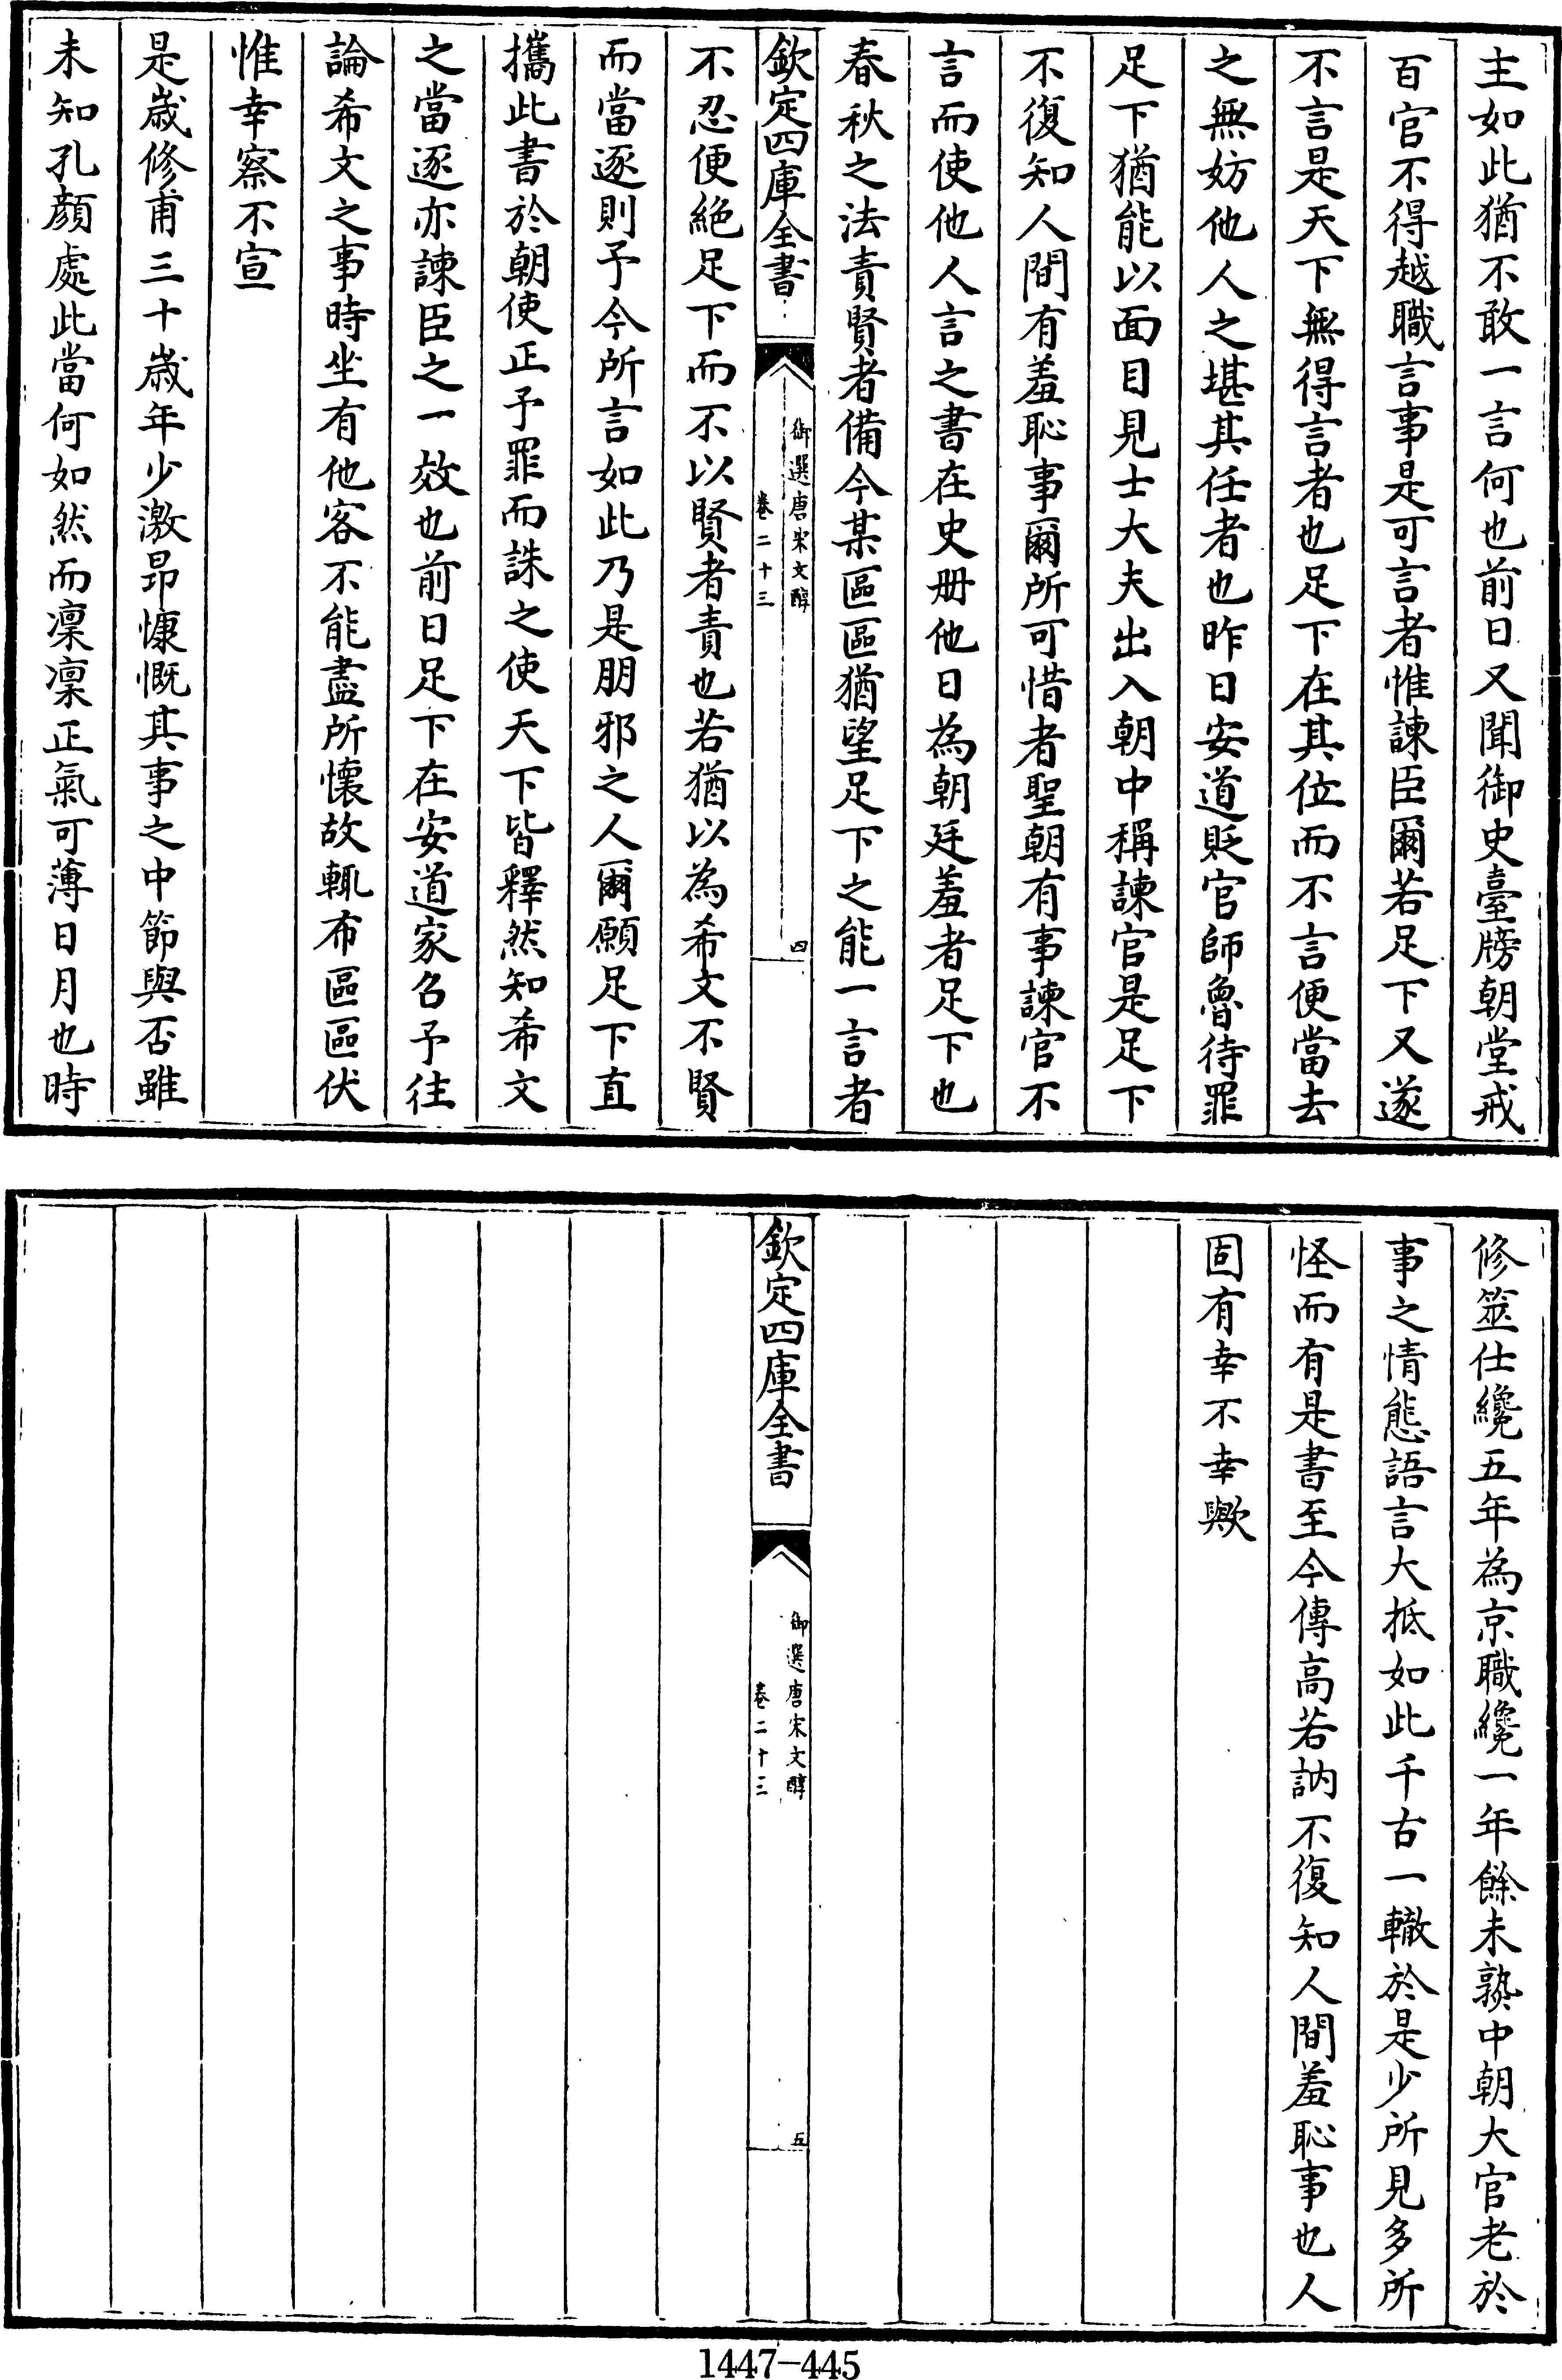 主如此猶不敢一言何也前日又聞御史臺牓朝堂戒
百官不得越職言事是可言者惟諫臣爾若足下又遂
不言是天下無得言者也足下在其位而不言便當去
之無妨他人之堪其任者也昨日安道貶官師魯待罪
足下猶能以面目見士大夫出入朝中稱諫官是足下
不復知人間有羞恥事爾所可惜者聖朝有事諫官不
言而使他人言之書在史册他日為朝廷羞者足下也
春秋之法責賢者備今某區區猶望足下之能一言者
欽定四庫全書
御選唐宋文醇
卷二十三
四
不忍便絶足下而不以賢者責也若猶以為希文不賢
而當逐則予今所言如此乃是朋邪之人爾願足下直
攜此書於朝使正予罪而誅之使天下皆釋然知希文
之當逐亦諫臣之一效也前日足下在安道家召予往
論希文之事時坐有他客不能盡所懷故輒布區區伏
惟幸察不宣
是歲修甫三十歲年少激昂慷慨其事之中節與否雖
未知孔顔處此當何如然而凜凜正氣可薄日月也時
修筮仕纔五年為京職纔一年餘未孰中朝大官老於
事之情態語言大抵如此千古一轍於是少所見多所
怪而有是書至今傳高若訥不復知人間羞恥事也人
固有幸不幸歟
欽定四庫全書
御選唐宋文醇
卷二十三
五
1447-445